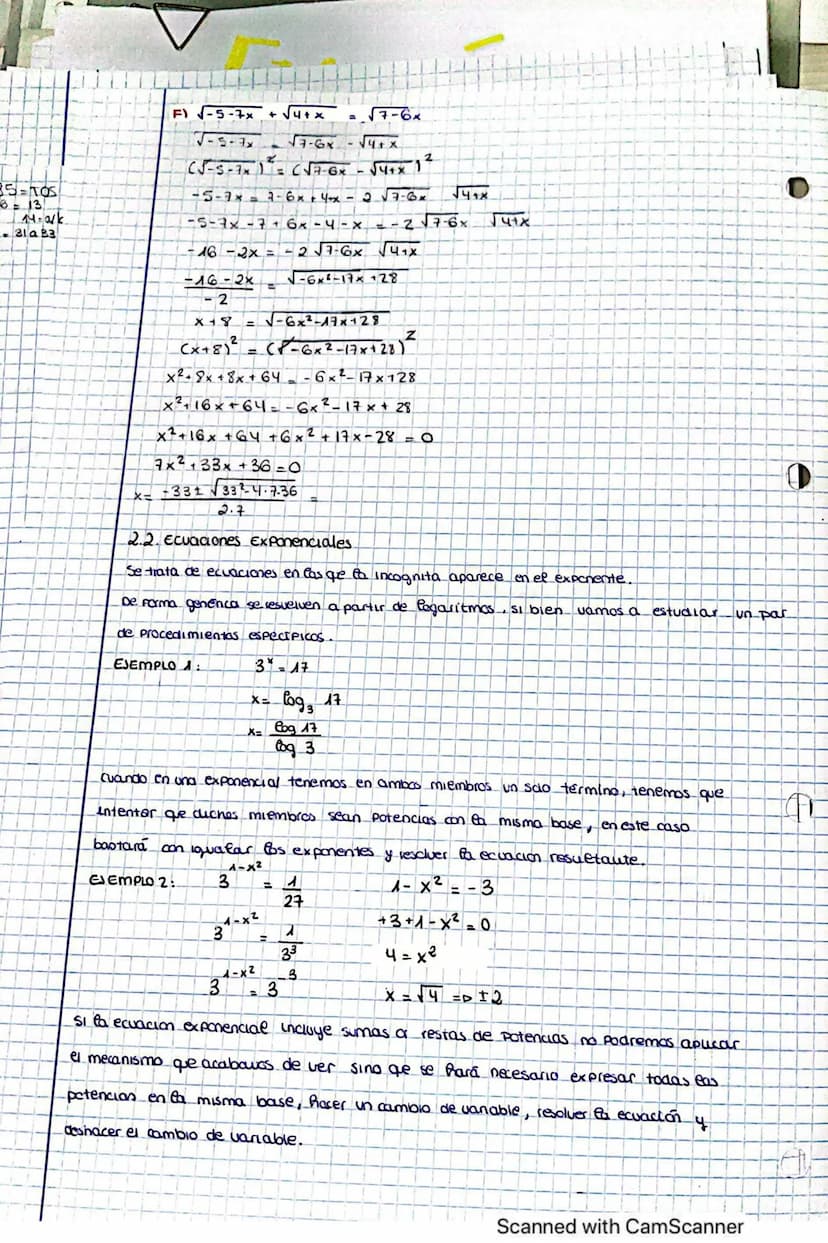 35=TOS
6 = 13
14=a/k
= 31 a 33
F) √-5-7x + √4+x = √7-6x
√-5-7x = √7-6x - √4+x
(√-5-7x)² = (√7-6x - √4+x)²
-5-7x = 7-6x+4+x - 2 √7-6x √4+x
-5-7x-7+6x-4-x = -2 √7-6x √4+x
-16-2x = -2 √7-6x √4+x
-16-2x / -2 = √-6x²-17x+28
x+8 = √-6x²-17x+28
(x+8)² = (√-6x²-17x+28)²
x²+8x+8x+64 = -6x²-17x+28
x²+16x+64 = -6x²-17x+28
x²+16x+64+6x²+17x-28=0
7x²+33x+36=0
x= -33± √33²-4·7·36 / 2·7 =
2.2. Ecuaciones Exponenciales
Se trata de ecuaciones en las que la incognita aparece en el exponente.
De forma genérica se resuelven a partir de logaritmos, si bien vamos a estudiar un par
de procedimientos específicos.
EJEMPLO 1: 3ˣ = 17
x= log₃ 17
x= log 17 / log 3
cuando en una exponencial tenemos en ambos miembros un solo término, tenemos que
intentar qe dichos miembros sean potencias con la misma base, en este caso
bastará con igualar los exponentes y resolver la ecuacion resultante.
EJEMPLO 2: 3^1-x² = 1/27 1-x² = -3
3^1-x² = 1/3³ +3+1-x² = 0
4 = x²
3^1-x² = 3^-3 x = √4 => ±2
Si la ecuacion exponencial incluye sumas o restas de potencias no podremos aplicar
el mecanismo que acabamos de ver sino qe se hará necesario expresar todas las
potencias en la misma base, hacer un cambio de variable, resolver la ecuación y
deshacer el cambio de variable.
Scanned with CamScanner